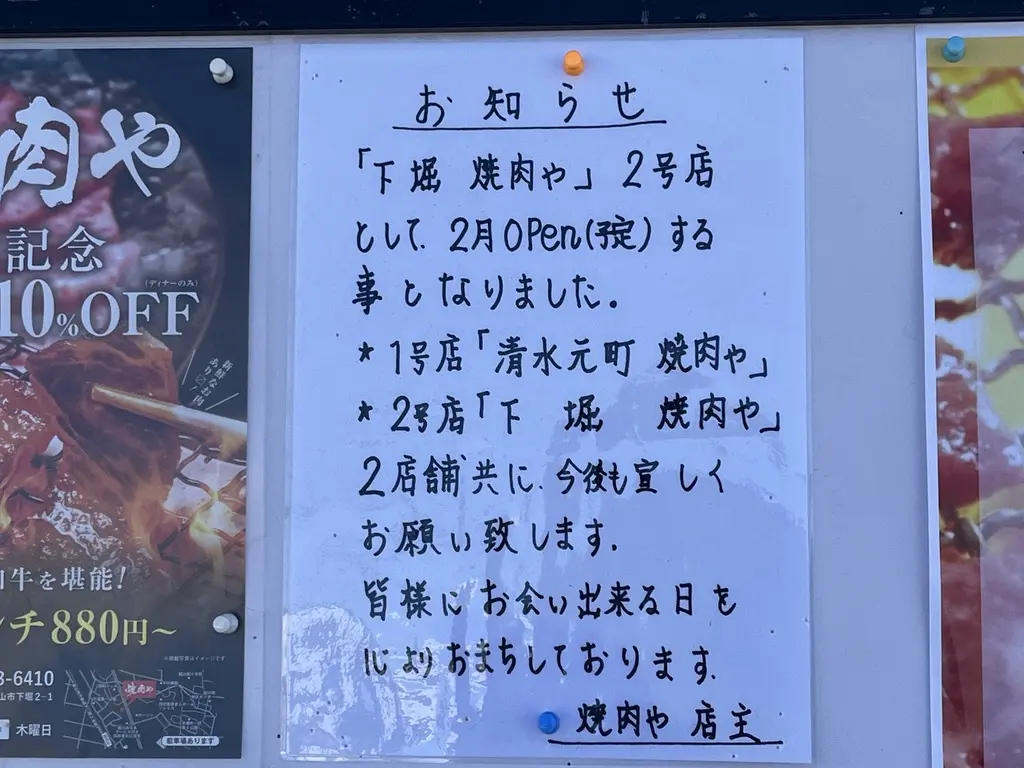 お知らせ
「下堀 焼肉や」2号店
として、2月OPen(予定)する
事となりました。
*1号店「清水元町 焼肉や」
*2号店「下 堀 焼肉や」
2店舗共に、今後も宜しく
お願い致します。
皆様にお会い出来る日を
心よりおまちしております。
焼肉や 店主
肉や
記念
(ディナーのみ)
10%OFF
牛を堪能!
ンチ880円~
※掲載写真はイメージです
3-6410
山市下堀2-1
木曜日
焼肉や
駐車場あります